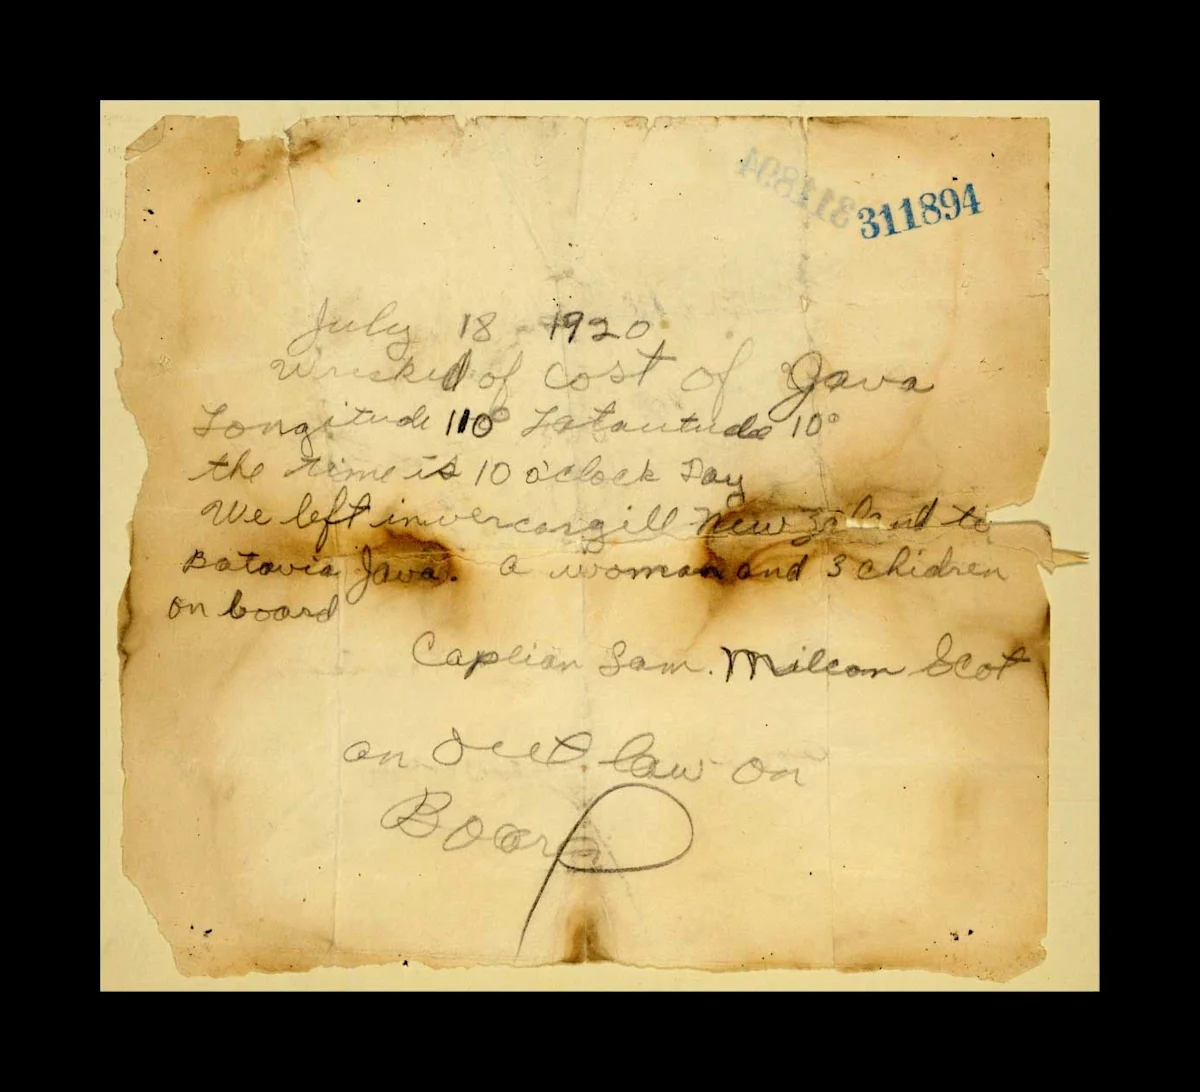 311894
July 18 - 1920
Wrecked of cost of Java
Longitude 110° Latautude 10°
the time is 10 o'clock Day
We left invercargill New Zeland to
Batavia Java. a woman and 3 chidren
on board
Captian Sam. Milcon Scot
an out law on
Board